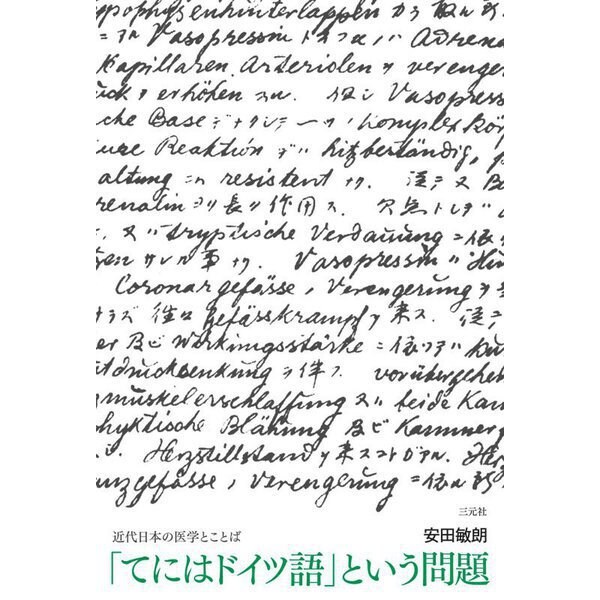 ypophysenhinterlappen カラ取ﾚﾙ
Vasopressin Adrena
Kapillaren, Arteriolen ヲ verenger
ück ヲ erhöhen スル. 但シ Vasopress
che Base デナク Komplex Kör
ure Reaktion デハ hitzbeständig,
altung resistent ナリ.
renalin ヨリ長ク作用ス. 欠点トシテ
tryptische Verdauung ニ依
事ナリ. Vasopressin
Coronargefässe, Verengerung ヲ
Gefässkrampf ヲ来ス.
er 及ビ Wirkungsstärke ニ依ツテ
tdrucksenkung ヲ伴ス. vorübergehe
muskelerschlaffung beide Kam
phyktische Blähung 及ビ Kammer
Herzstillstand ヲ来スコトアル. Herz
anzgefässe, Verengerung ニ依ル
三元社
近代日本の医学とことば
安田敏朗
「てにはドイツ語」という問題